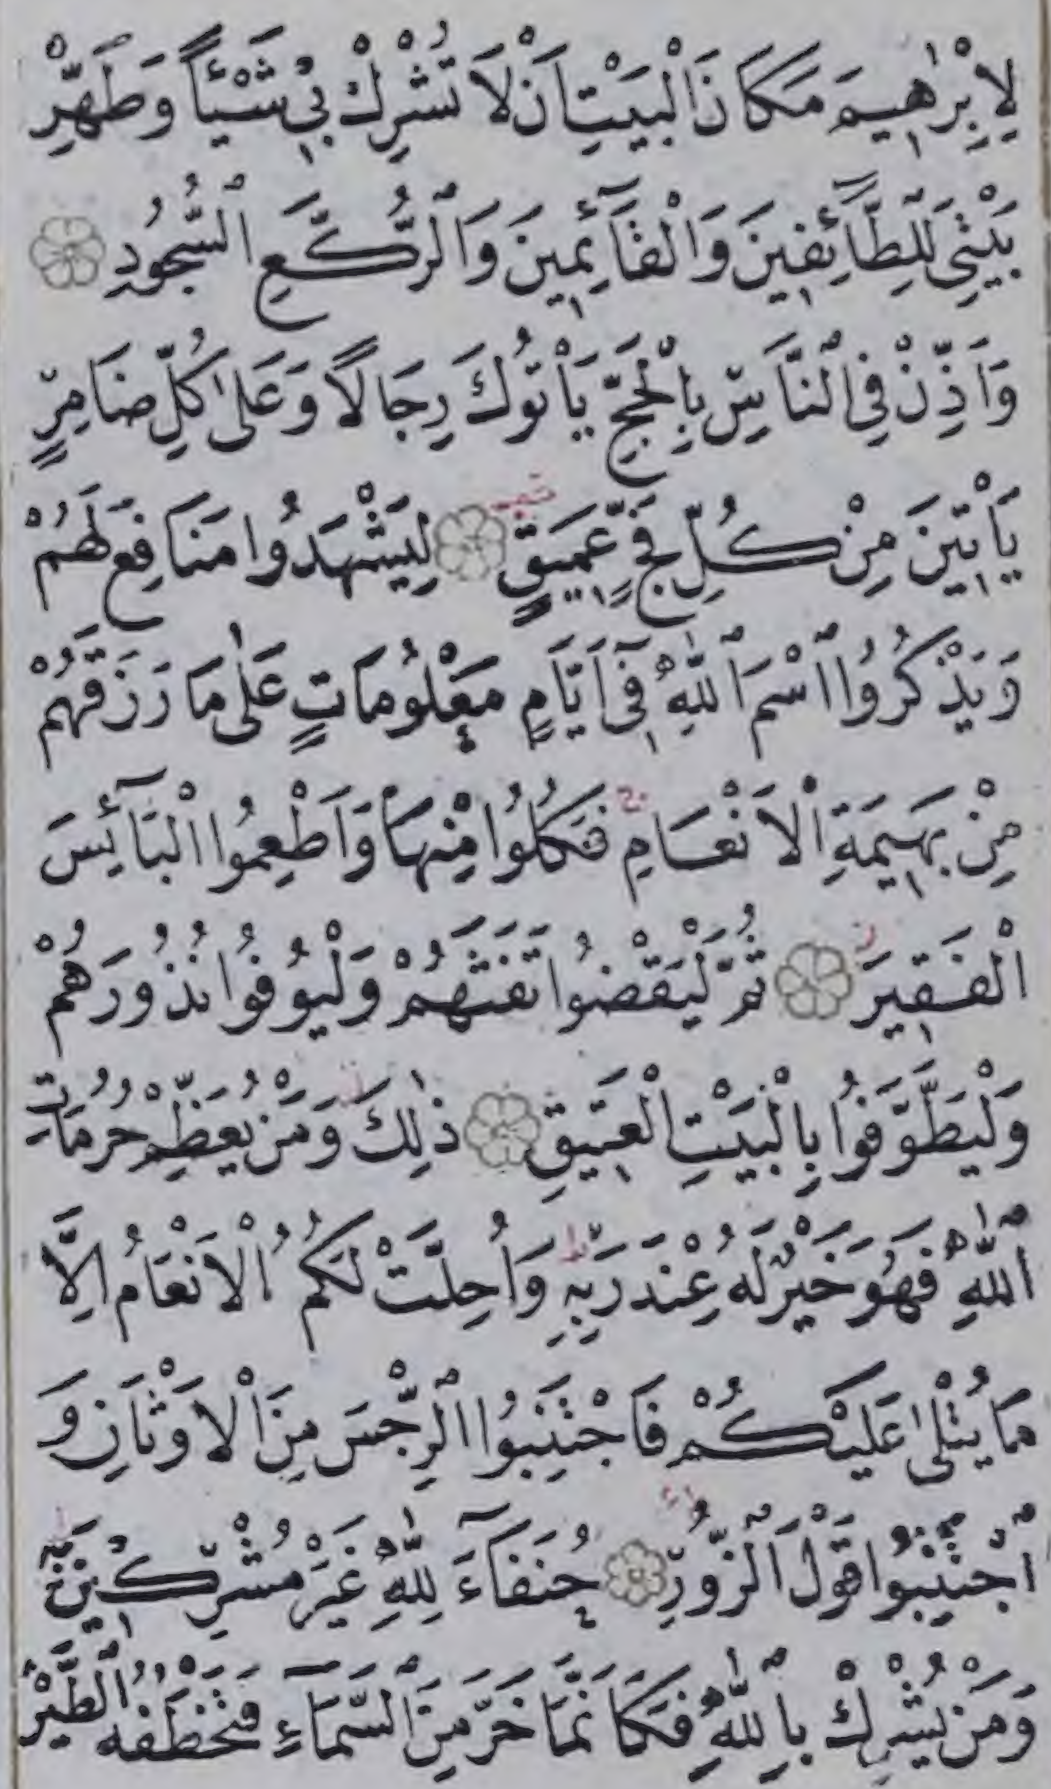 لِاِبْرٰهٖيمَ مَكَانَ الْبَيْتِ اَنْ لَا تُشْرِكْ بٖى شَيْـًٔا وَطَهِّرْ
بَيْتِىَ لِلطَّآئِفٖينَ وَالْقَآئِمٖينَ وَالرُّكَّعِ السُّجُودِ
وَاَذِّنْ فِى النَّاسِ بِالْحَجِّ يَاْتُوكَ رِجَالًا وَعَلٰى كُلِّ ضَامِرٍ
يَاْتٖينَ مِنْ كُلِّ فَجٍّ عَمٖيقٍ لِيَشْهَدُوا مَنَافِعَ لَهُمْ
وَيَذْكُرُوا اسْمَ اللّٰهِ فٖٓى اَيَّامٍ مَعْلُومَاتٍ عَلٰى مَا رَزَقَهُمْ
مِنْ بَهٖيمَةِ الْاَنْعَامِ فَكُلُوا مِنْهَا وَاَطْعِمُوا الْبَآئِسَ
الْفَقٖيرَ ثُمَّ لْيَقْضُوا تَفَثَهُمْ وَلْيُوفُوا نُذُورَهُمْ
وَلْيَطَّوَّفُوا بِالْبَيْتِ الْعَتٖيقِ ذٰلِكَ وَمَنْ يُعَظِّمْ حُرُمَاتِ
اللّٰهِ فَهُوَ خَيْرٌ لَهُ عِنْدَ رَبِّهٖ وَاُحِلَّتْ لَكُمُ الْاَنْعَامُ اِلَّا
مَا يُتْلٰى عَلَيْكُمْ فَاجْتَنِبُوا الرِّجْسَ مِنَ الْاَوْثَانِ وَ
اجْتَنِبُوا قَوْلَ الزُّورِ حُنَفَآءَ لِلّٰهِ غَيْرَ مُشْرِكٖينَ بِهٖ
وَمَنْ يُشْرِكْ بِاللّٰهِ فَكَاَنَّمَا خَرَّ مِنَ السَّمَآءِ فَتَخْطَفُهُ الطَّيْرُ